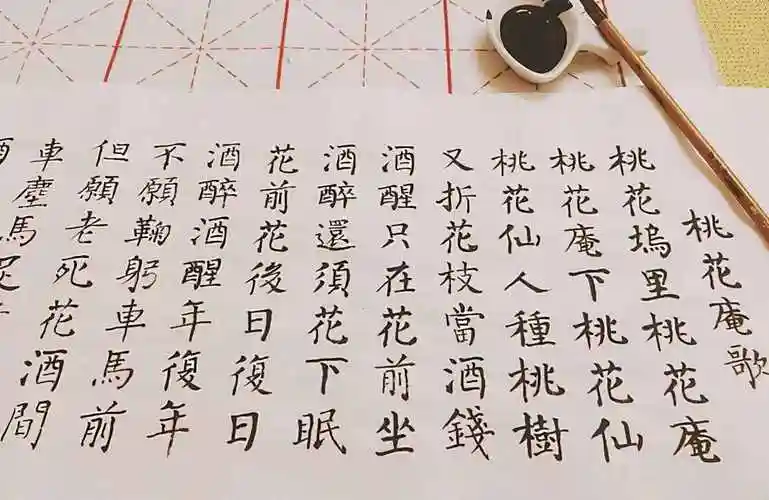 桃花庵歌
桃花塢里桃花庵
桃花庵下桃花仙
桃花仙人種桃樹
又折花枝當酒錢
酒醒只在花前坐
酒醉還須花下眠
花前花後日復日
酒醉酒醒年復年
不願鞠躬車馬前
但願老死花酒間
車塵馬足